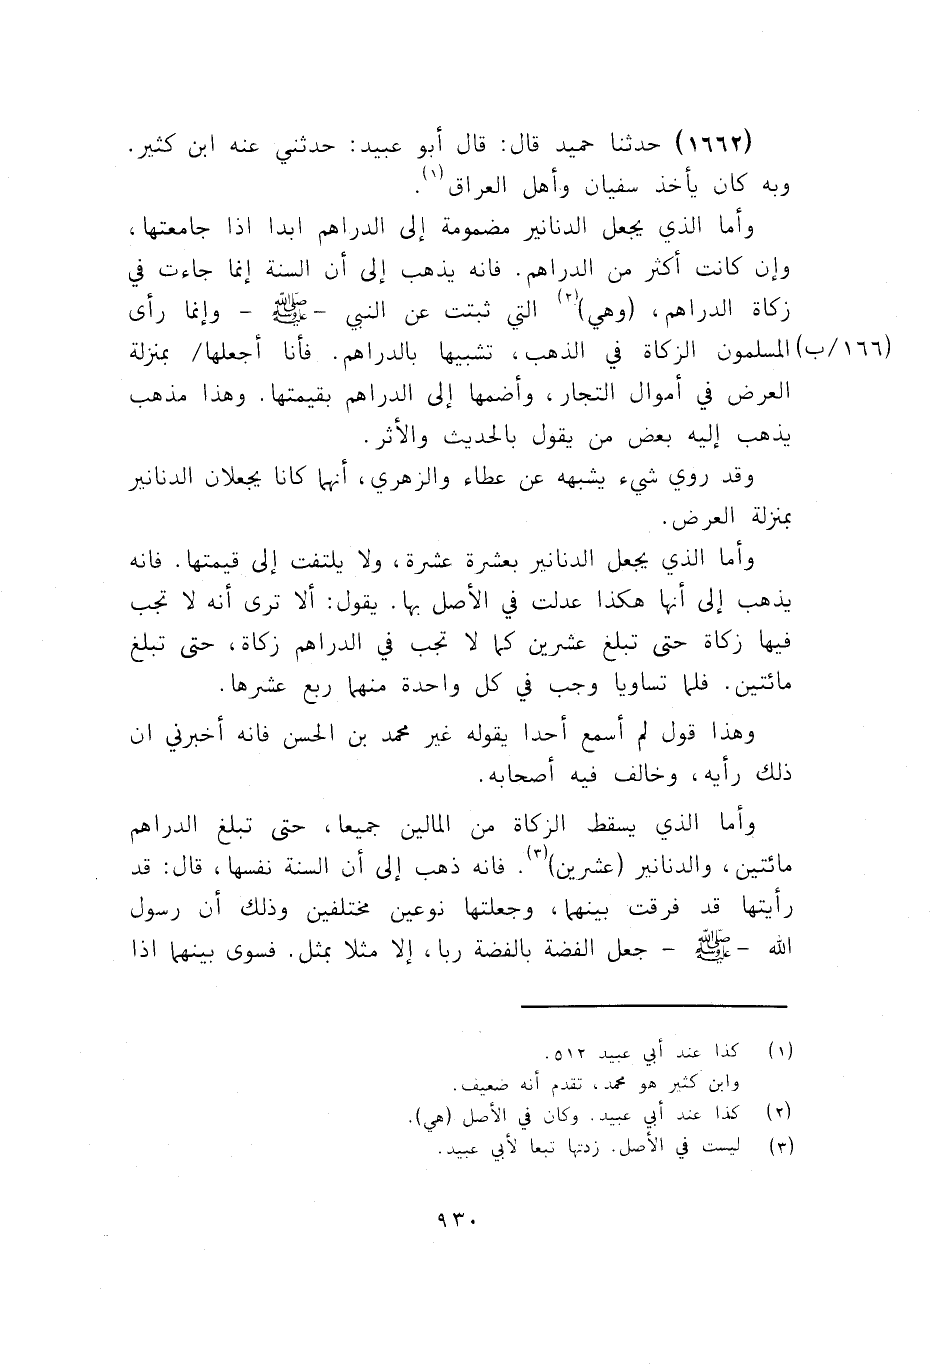 (١٦٦٢) حدثنا حميد قال: قال أبو عبيد: حدثني عنه ابن كثير.
وبه كان يأخذ سفيان وأهل العراق(١).
وأما الذي يجعل الدنانير مضمومة إلى الدراهم ابدا اذا جامعتها،
وإن كانت أكثر من الدراهم. فانه يذهب إلى أن السنة إنما جاءت في
زكاة الدراهم، (وهي)(٢) التي ثبتت عن النبي - ﷺ - وإنما رأى
(١٦٦/ب) المسلمون الزكاة في الذهب، تشبيها بالدراهم. فأنا أجعلها/ بمنزلة
العرض في أموال التجار، وأضمها إلى الدراهم بقيمتها. وهذا مذهب
يذهب إليه بعض من يقول بالحديث والأثر.
وقد روي شيء يشبهه عن عطاء والزهري، أنهما كانا يجعلان الدنانير
بمنزلة العرض.
وأما الذي يجعل الدنانير بعشرة عشرة، ولا يلتفت إلى قيمتها. فانه
يذهب إلى أنها هكذا عدلت في الأصل بها. يقول: ألا ترى أنه لا تجب
فيها زكاة حتى تبلغ عشرين كما لا تجب في الدراهم زكاة، حتى تبلغ
مائتين. فلما تساويا وجب في كل واحدة منهما ربع عشرها.
وهذا قول لم أسمع أحدا يقوله غير محمد بن الحسن فانه أخبرني ان
ذلك رأيه، وخالف فيه أصحابه.
وأما الذي يسقط الزكاة من المالين جميعا، حتى تبلغ الدراهم
مائتين، والدنانير (عشرين)(٣). فانه ذهب إلى أن السنة نفسها، قال: قد
رأيتها قد فرقت بينهما، وجعلتها نوعين مختلفين وذلك أن رسول
الله - ﷺ - جعل الفضة بالفضة ربا، إلا مثلا بمثل. فسوى بينهما اذا
(١) كذا عند أبي عبيد ٥١٢.
وابن كثير هو محمد، تقدم أنه ضعيف.
(٢) كذا عند أبي عبيد. وكان في الأصل (هي).
(٣) ليست في الأصل. زدتها تبعا لأبي عبيد.
٩٣٠